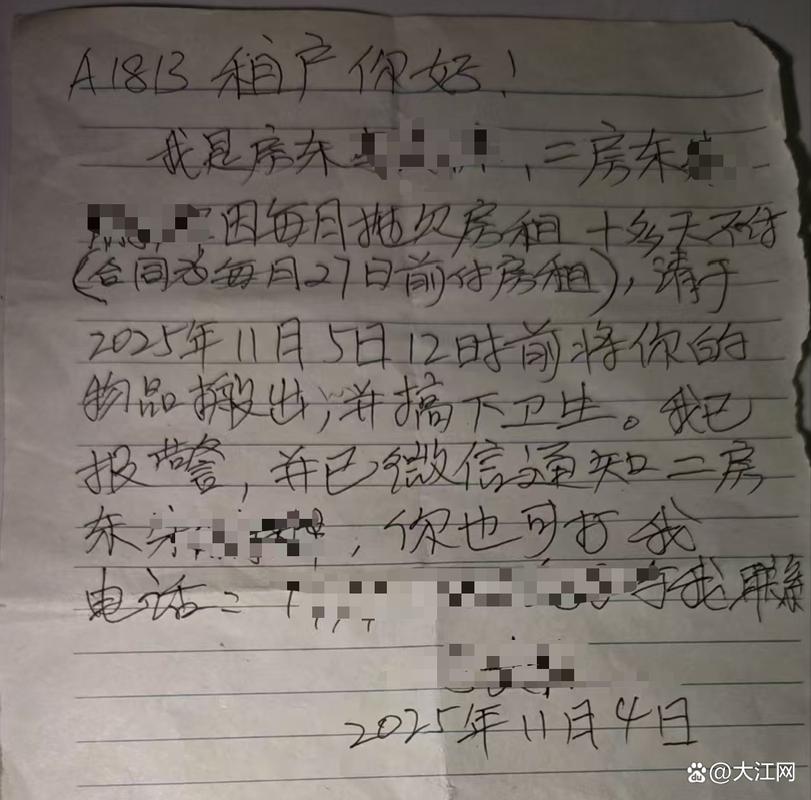 A1813 租户你好！
我是房东，二房东
因每月拖欠房租十多天不付
（合同为每月27日前付房租），请于
2025年11月5日12时前将你的
物品搬出，并搞下卫生。我已
报警，并已微信通知二房
东，你也可打我
电话：与我联系
2025年11月4日
@大江网